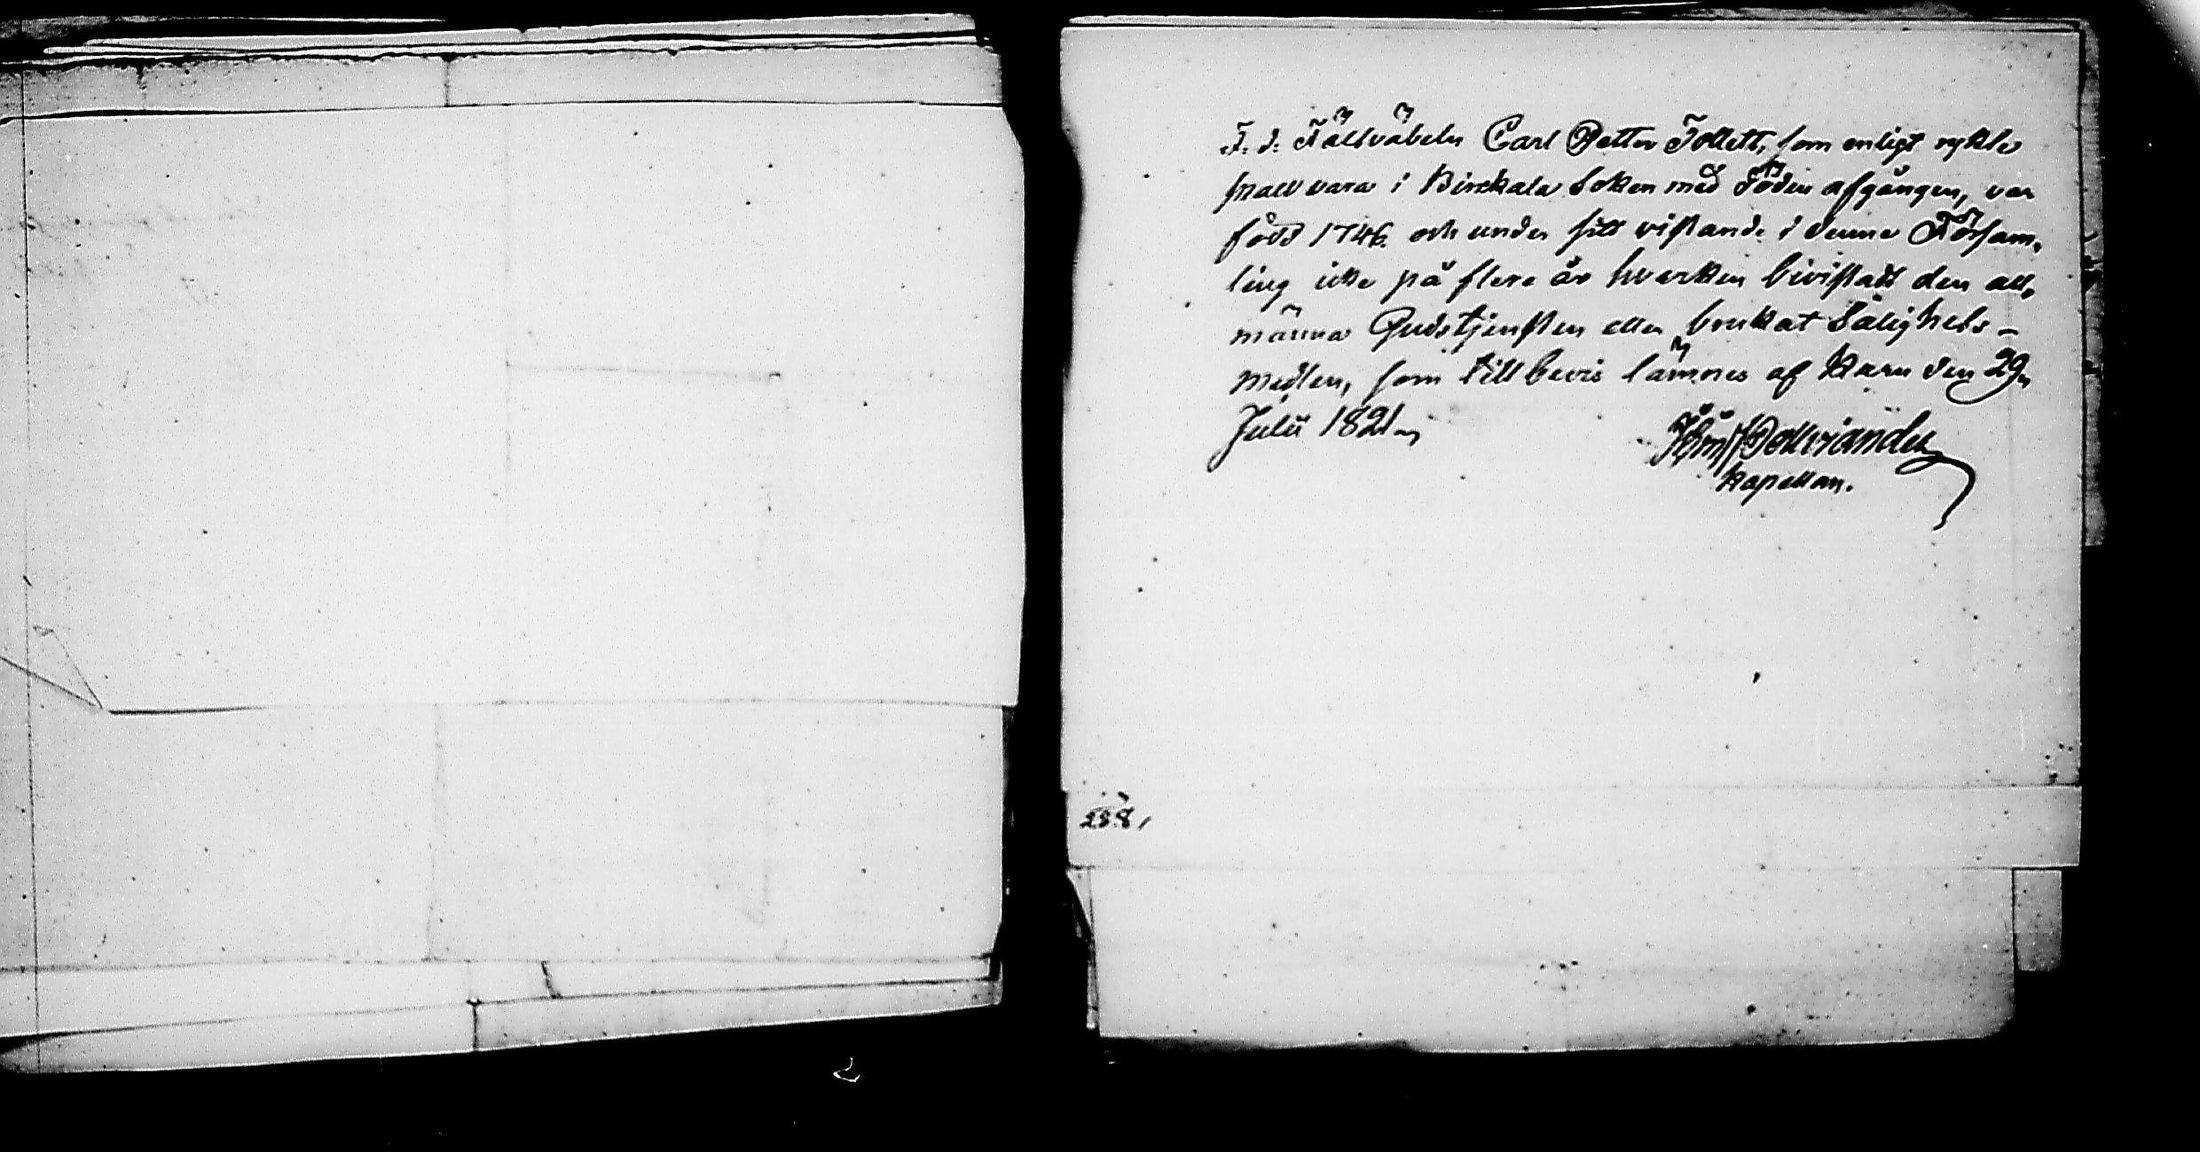 F. d. Fältväbeln Carl Petter Tollett, som enligt rykte
skall vara i Birckala Soken med Döden afgången, var
född 1746. och under sitt vistande i denna Försam,
ling icke på flere år hvarken bivistatt den all,
männa Gudstjensten eller brukat Salighets-
medlen, som till bevis lämnes af Karu den 29
Julii 1821
kapellan.
238,